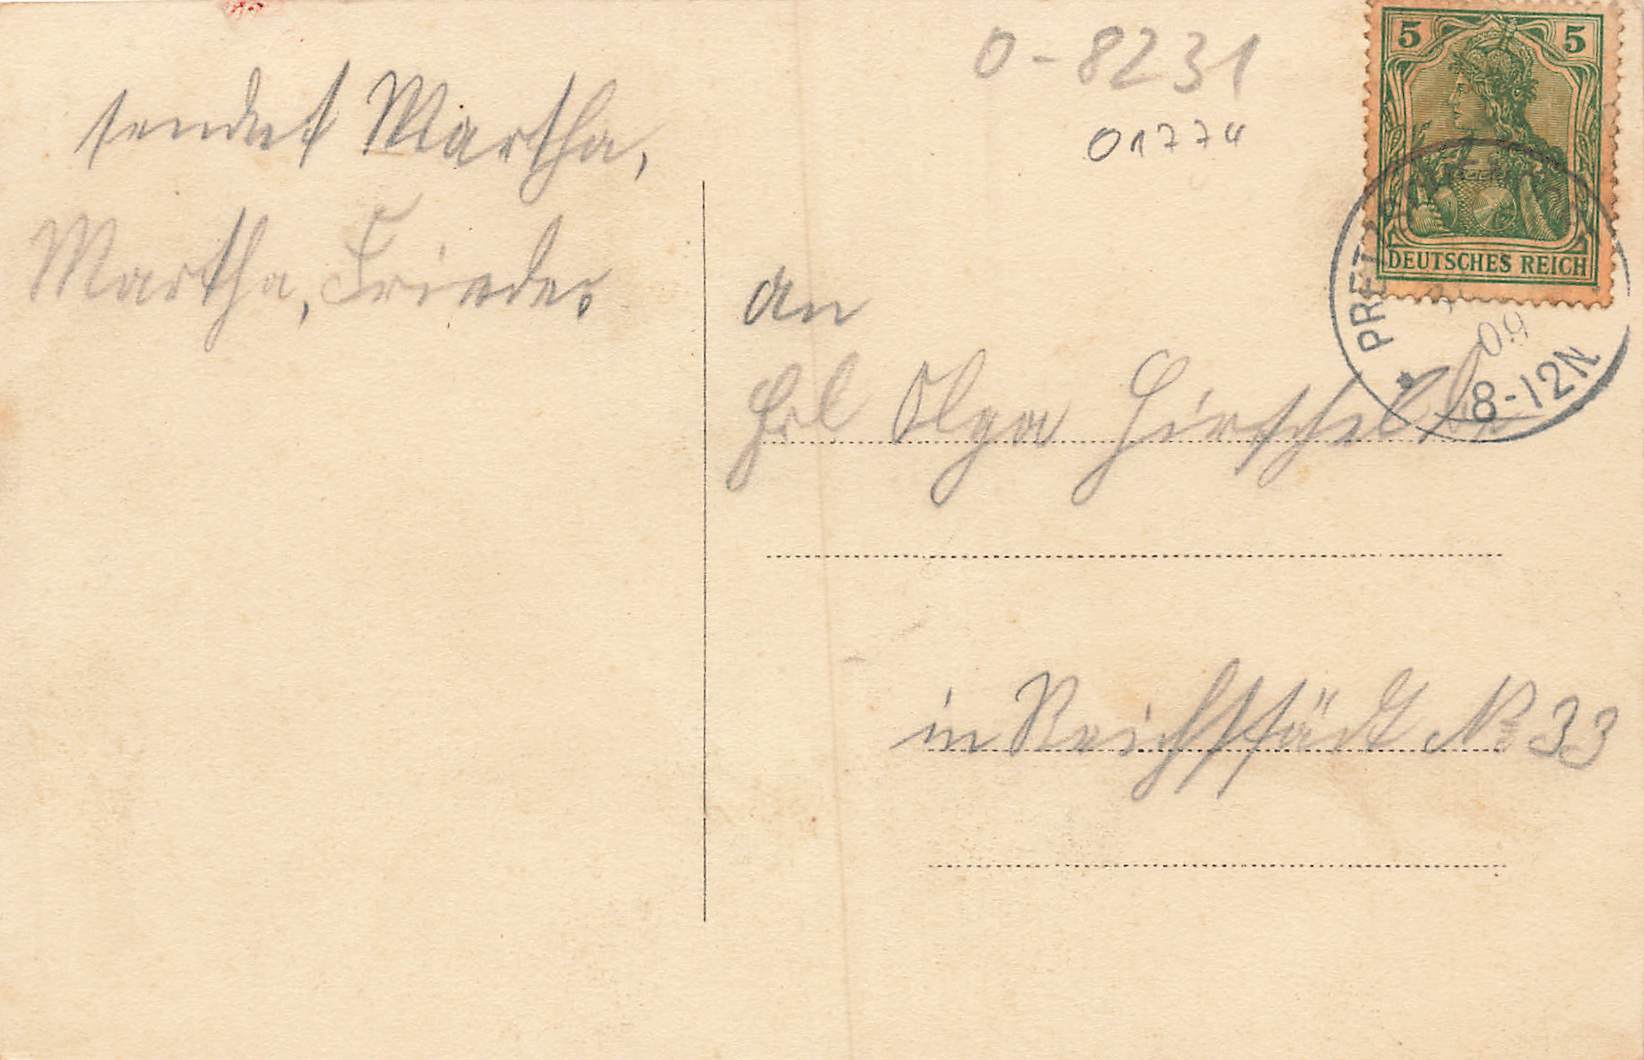 sendet Martha,
Martha, Frieda.
0-8231
01774
5 5
DEUTSCHES REICH
09
8-12N
An
Frl Olga
in Reichstädt No 33